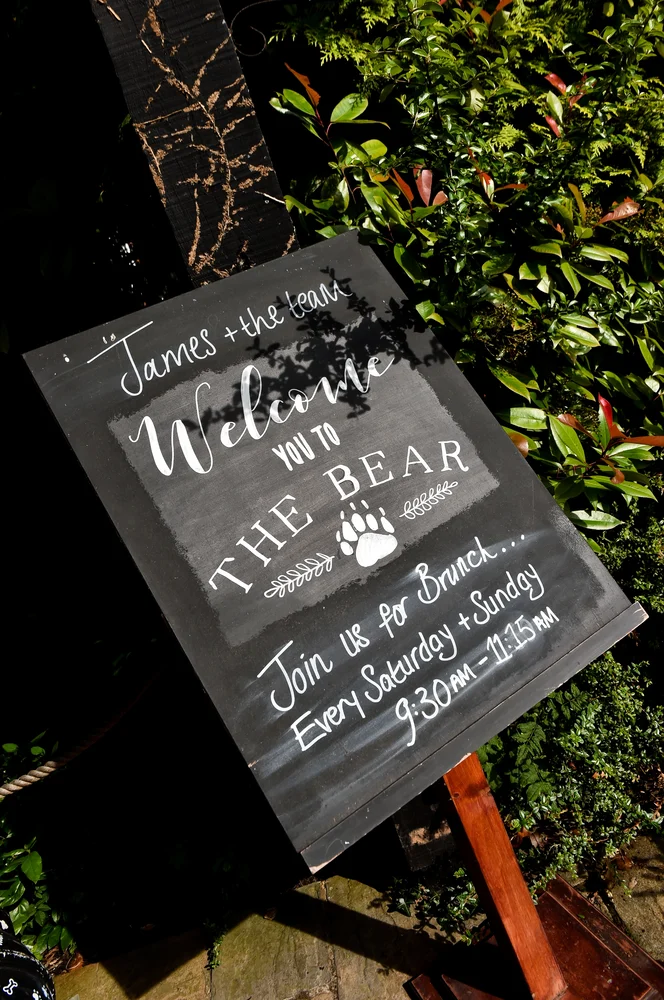 James + the team
Welcome
YOU TO
THE BEAR
Join us for Brunch...
Every Saturday + Sunday
9:30AM - 11:15AM